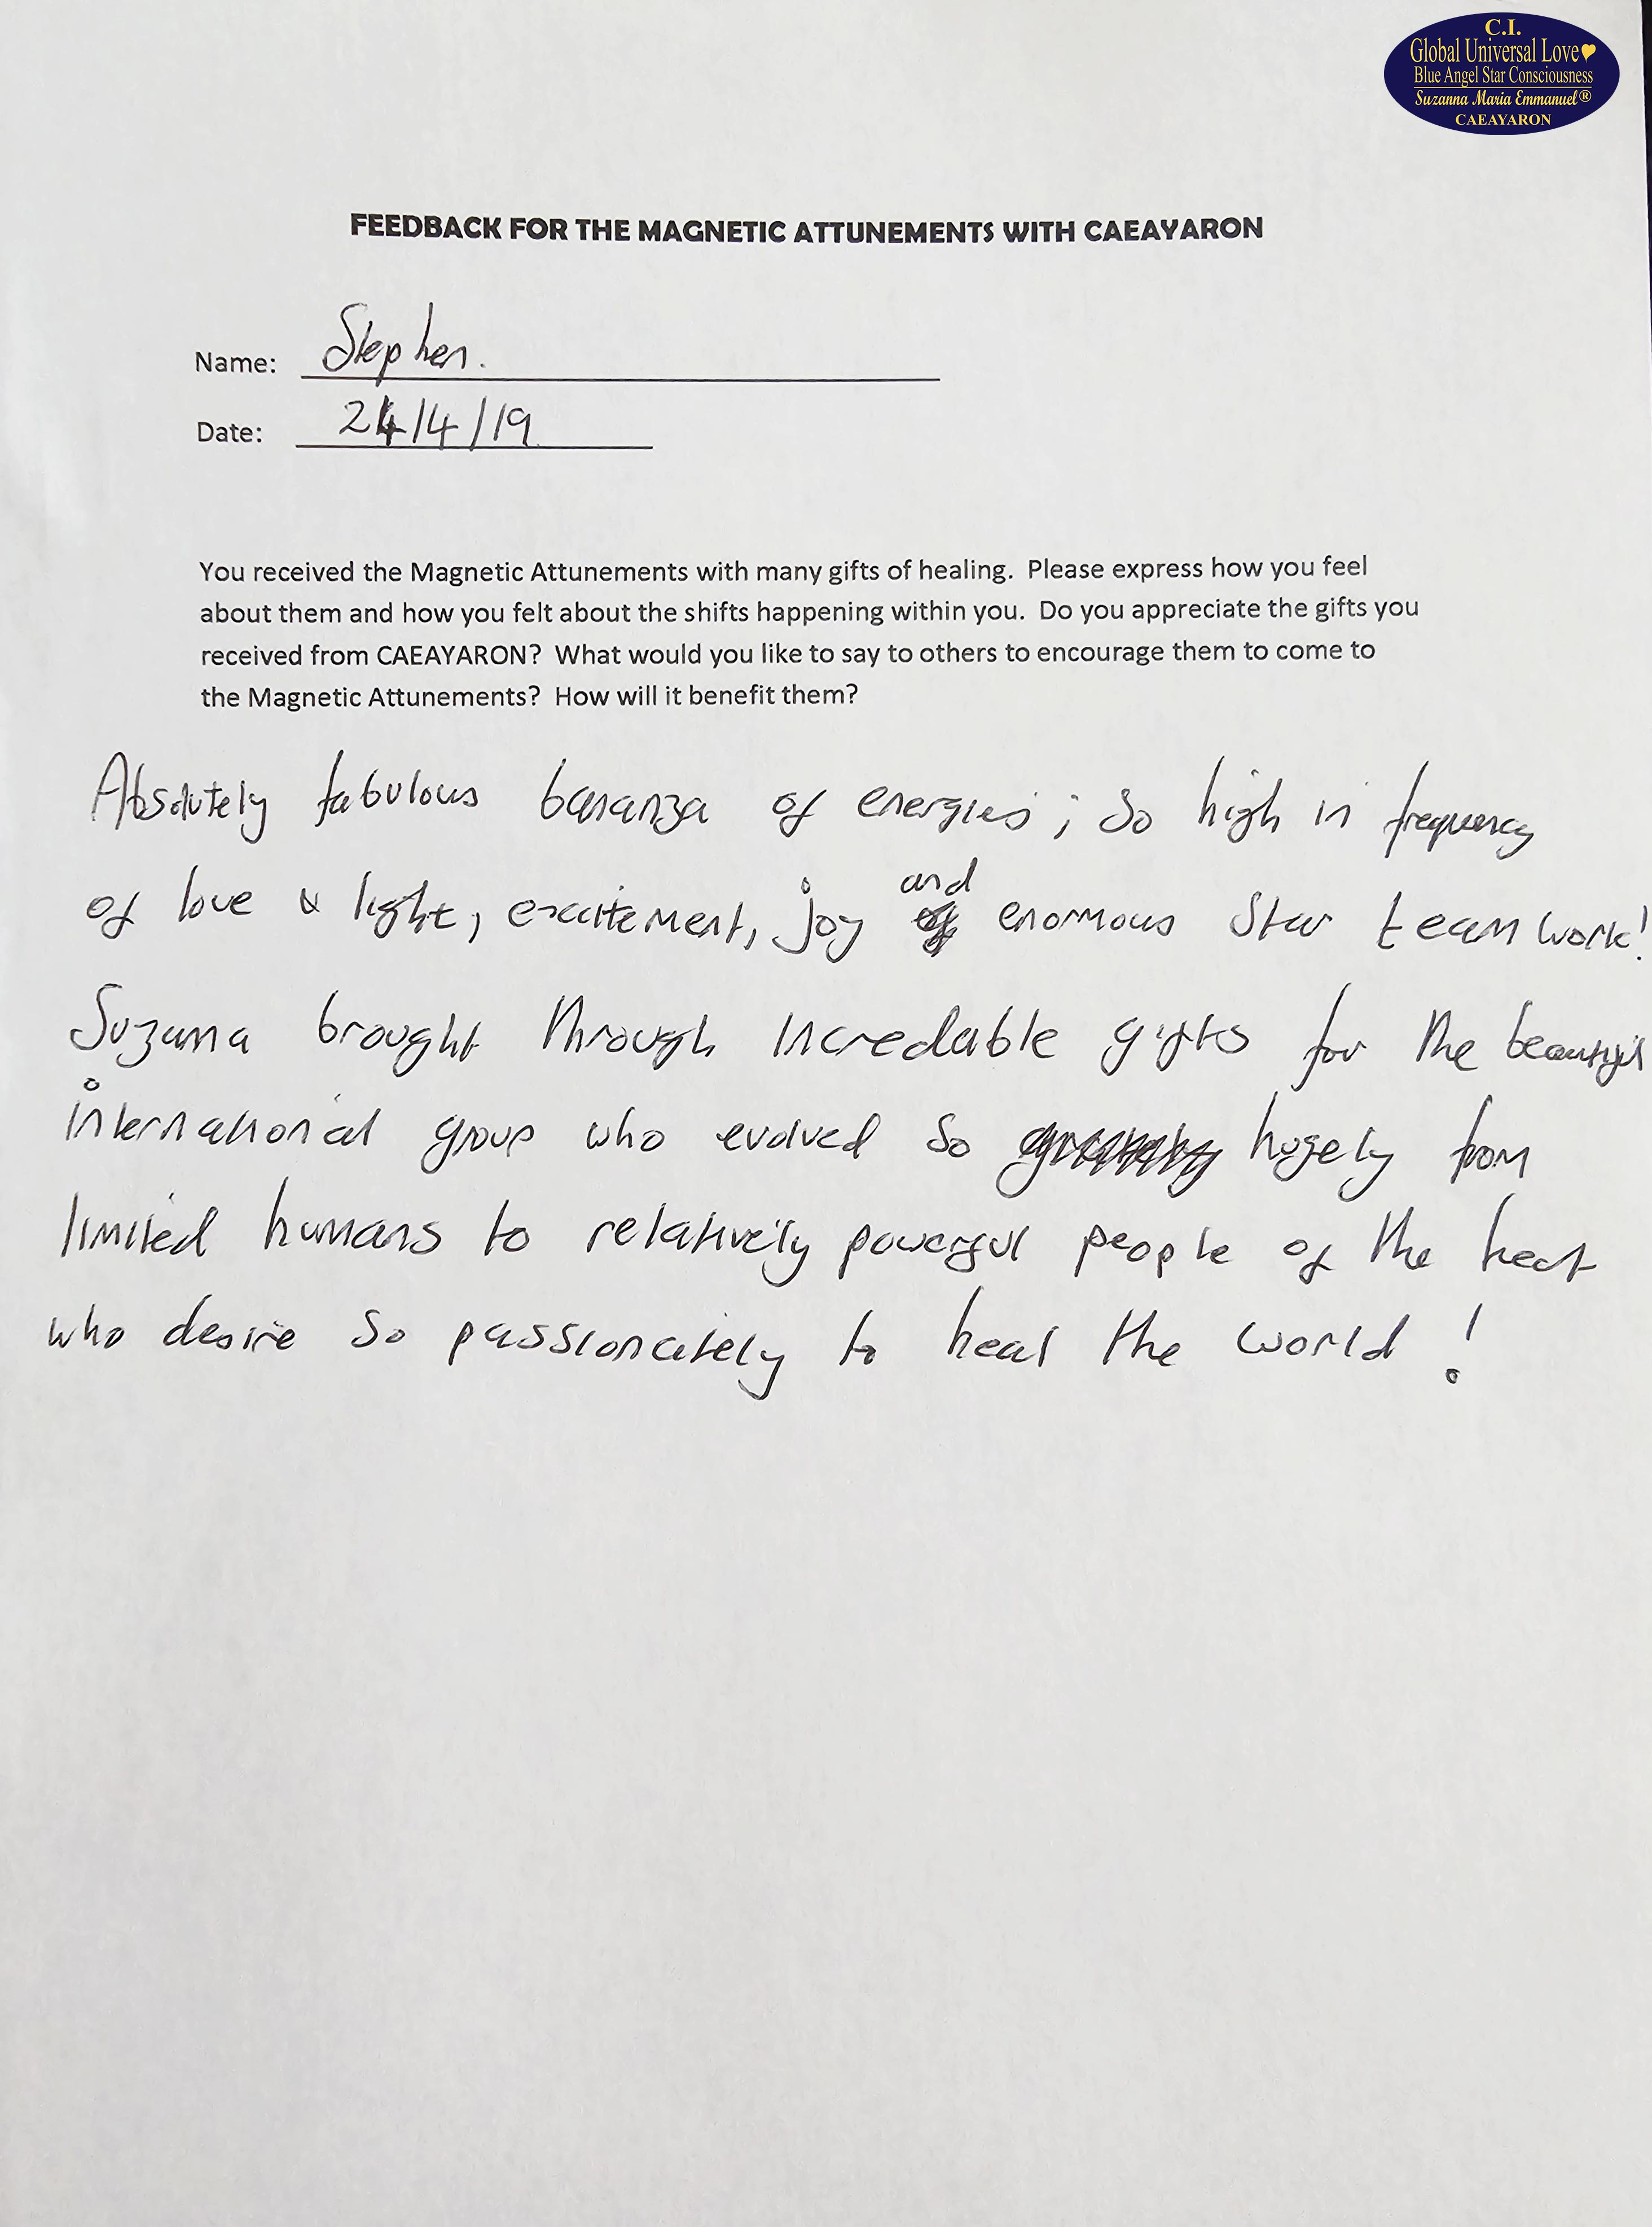 C.I.
Global Universal Love
Blue Angel Star Consciousness
Suzanna Maria Emmanuel®
CAEAYARON
FEEDBACK FOR THE MAGNETIC ATTUNEMENTS WITH CAEAYARON
Name: Stephen.
Date: 24/4/19
You received the Magnetic Attunements with many gifts of healing. Please express how you feel
about them and how you felt about the shifts happening within you. Do you appreciate the gifts you
received from CAEAYARON? What would you like to say to others to encourage them to come to
the Magnetic Attunements? How will it benefit them?
Absolutely fabulous bananza of energies; so high in frequency
of love & light, excitement, joy and enormous Star teamwork!
Suzanna brought through incredable gifts for the beautiful
international group who evolved so hugely from
limited humans to relatively powerful people of the heat
who desire so passionately to heal the world!